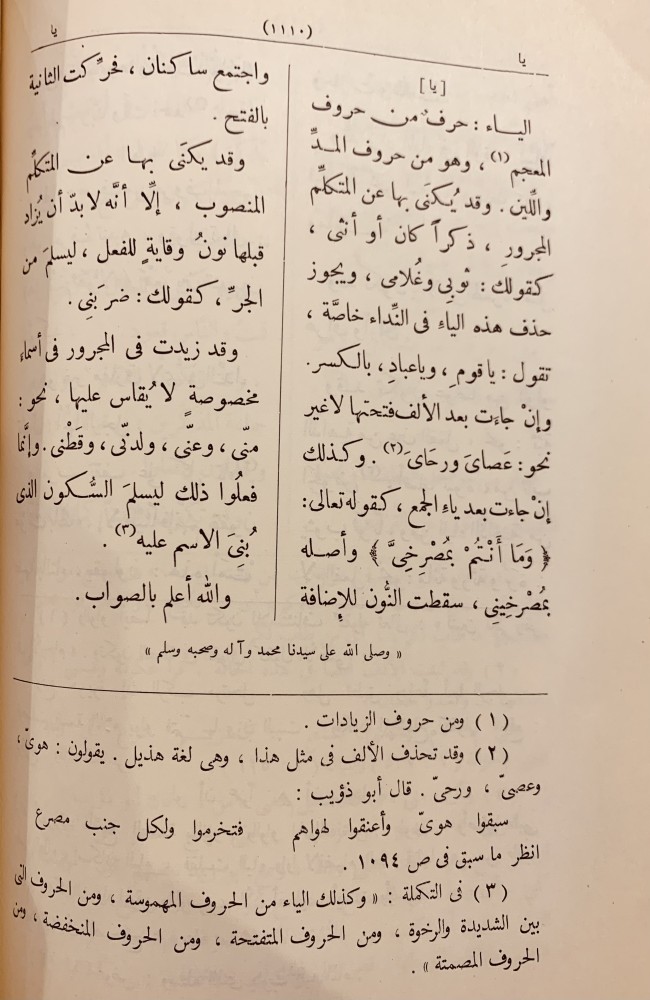 يا
(١١١٠)
يا
[يا]
اليـاء : حرفٌ من حروف
المعجم(١) ، وهو من حروف المـدِّ
واللِّين . وقد يُكنَى بها عن المتكلِّم
المجرورِ ، ذكراً كان أو أنثى ،
كقولك : ثوبِى وغُلامى ، ويجوز
حذف هذه الياءِ فى النِّداء خاصَّة ،
تقول : ياقومِ ، وياعبادِ ، بالكسر .
وإنْ جاءَت بعد الألف فتحتها لاغير
نحو : عَصاىَ ورحَاىَ(٢) . وكـذلك
إنْ جاءت بعد ياءِ الجمع ، كقوله تعالى :
﴿ وَمَا أَنْتُمْ بمُصْرِخِىَّ ﴾ وأصـله
بمُصْرخِينِى ، سقطت النُّون للإضافة
واجتمع ساكنان ، فحرِّكت الثانية
بالفتح .
وقد يكنَى بهـا عن المتكلِّم
المنصوب ، إلَّا أنَّه لا بدّ أن يُزاد
قبلها نونُ وقايةٍ للفعل ، ليسلمَ من
الجرِّ ، كقولك : ضرَبَنِى .
وقد زيدت فى المجرور فى أسماءٍ
مخصوصةٍ لا يُقاس عليها ، نحو :
منّى ، وعنّى ، ولدنّى ، وقَطْنى . وإنَّما
فعلُوا ذلك ليسلمَ السُّكون الذى
بُنِىَ الاسم عليه(٣) .
والله أعلم بالصواب .
« وصلى الله على سيدنا محمد وآله وصحبه وسلم »
(١) ومن حروف الزيادات .
(٢) وقد تحذف الألف فى مثل هذا ، وهى لغة هذيل . يقولون : هوىّ ،
وعصىّ ، ورحىّ . قال أبو ذؤيب :
سبقوا هوىّ وأعنقوا لهواهم فتخرموا ولكل جنب مصرع
انظر ما سبق فى ص ١٠٩٤ .
(٣) فى التكملة : « وكذلك الياء من الحروف المهموسة ، ومن الحروف التى
بين الشديدة والرخوة ، ومن الحروف المتفتحة ، ومن الحروف المنخفضة ، ومن
الحروف المصمتة » .